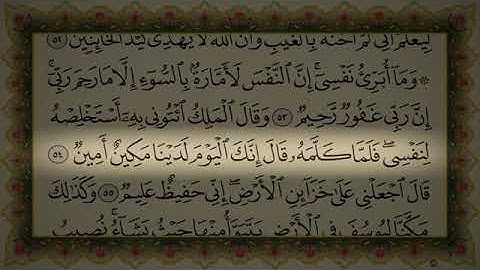 لِيَعْلَمَ أَنِّي لَمْ أَخُنْهُ بِٱلْغَيْبِ وَأَنَّ ٱللَّهَ لَا يَهْدِى كَيْدَ ٱلْخَآئِنِينَ ٥٢
۞ وَمَآ أُبَرِّئُ نَفْسِىٓ ۚ إِنَّ ٱلنَّفْسَ لَأَمَّارَةٌۢ بِٱلسُّوٓءِ إِلَّا مَا رَحِمَ رَبِّىٓ ۚ
إِنَّ رَبِّى غَفُورٌ رَّحِيمٌ ٥٣ وَقَالَ ٱلْمَلِكُ ٱئْتُونِى بِهِۦٓ أَسْتَخْلِصْهُ
لِنَفْسِى ۖ فَلَمَّا كَلَّمَهُۥ قَالَ إِنَّكَ ٱلْيَوْمَ لَدَيْنَا مَكِينٌ أَمِينٌ ٥٤
قَالَ ٱجْعَلْنِى عَلَىٰ خَزَآئِنِ ٱلْأَرْضِ ۖ إِنِّى حَفِيظٌ عَلِيمٌ ٥٥ وَكَذَٰلِكَ
مَكَّنَّا لِيُوسُفَ فِى ٱلْأَرْضِ يَتَبَوَّأُ مِنْهَا حَيْثُ يَشَآءُ ۚ نُصِيبُ